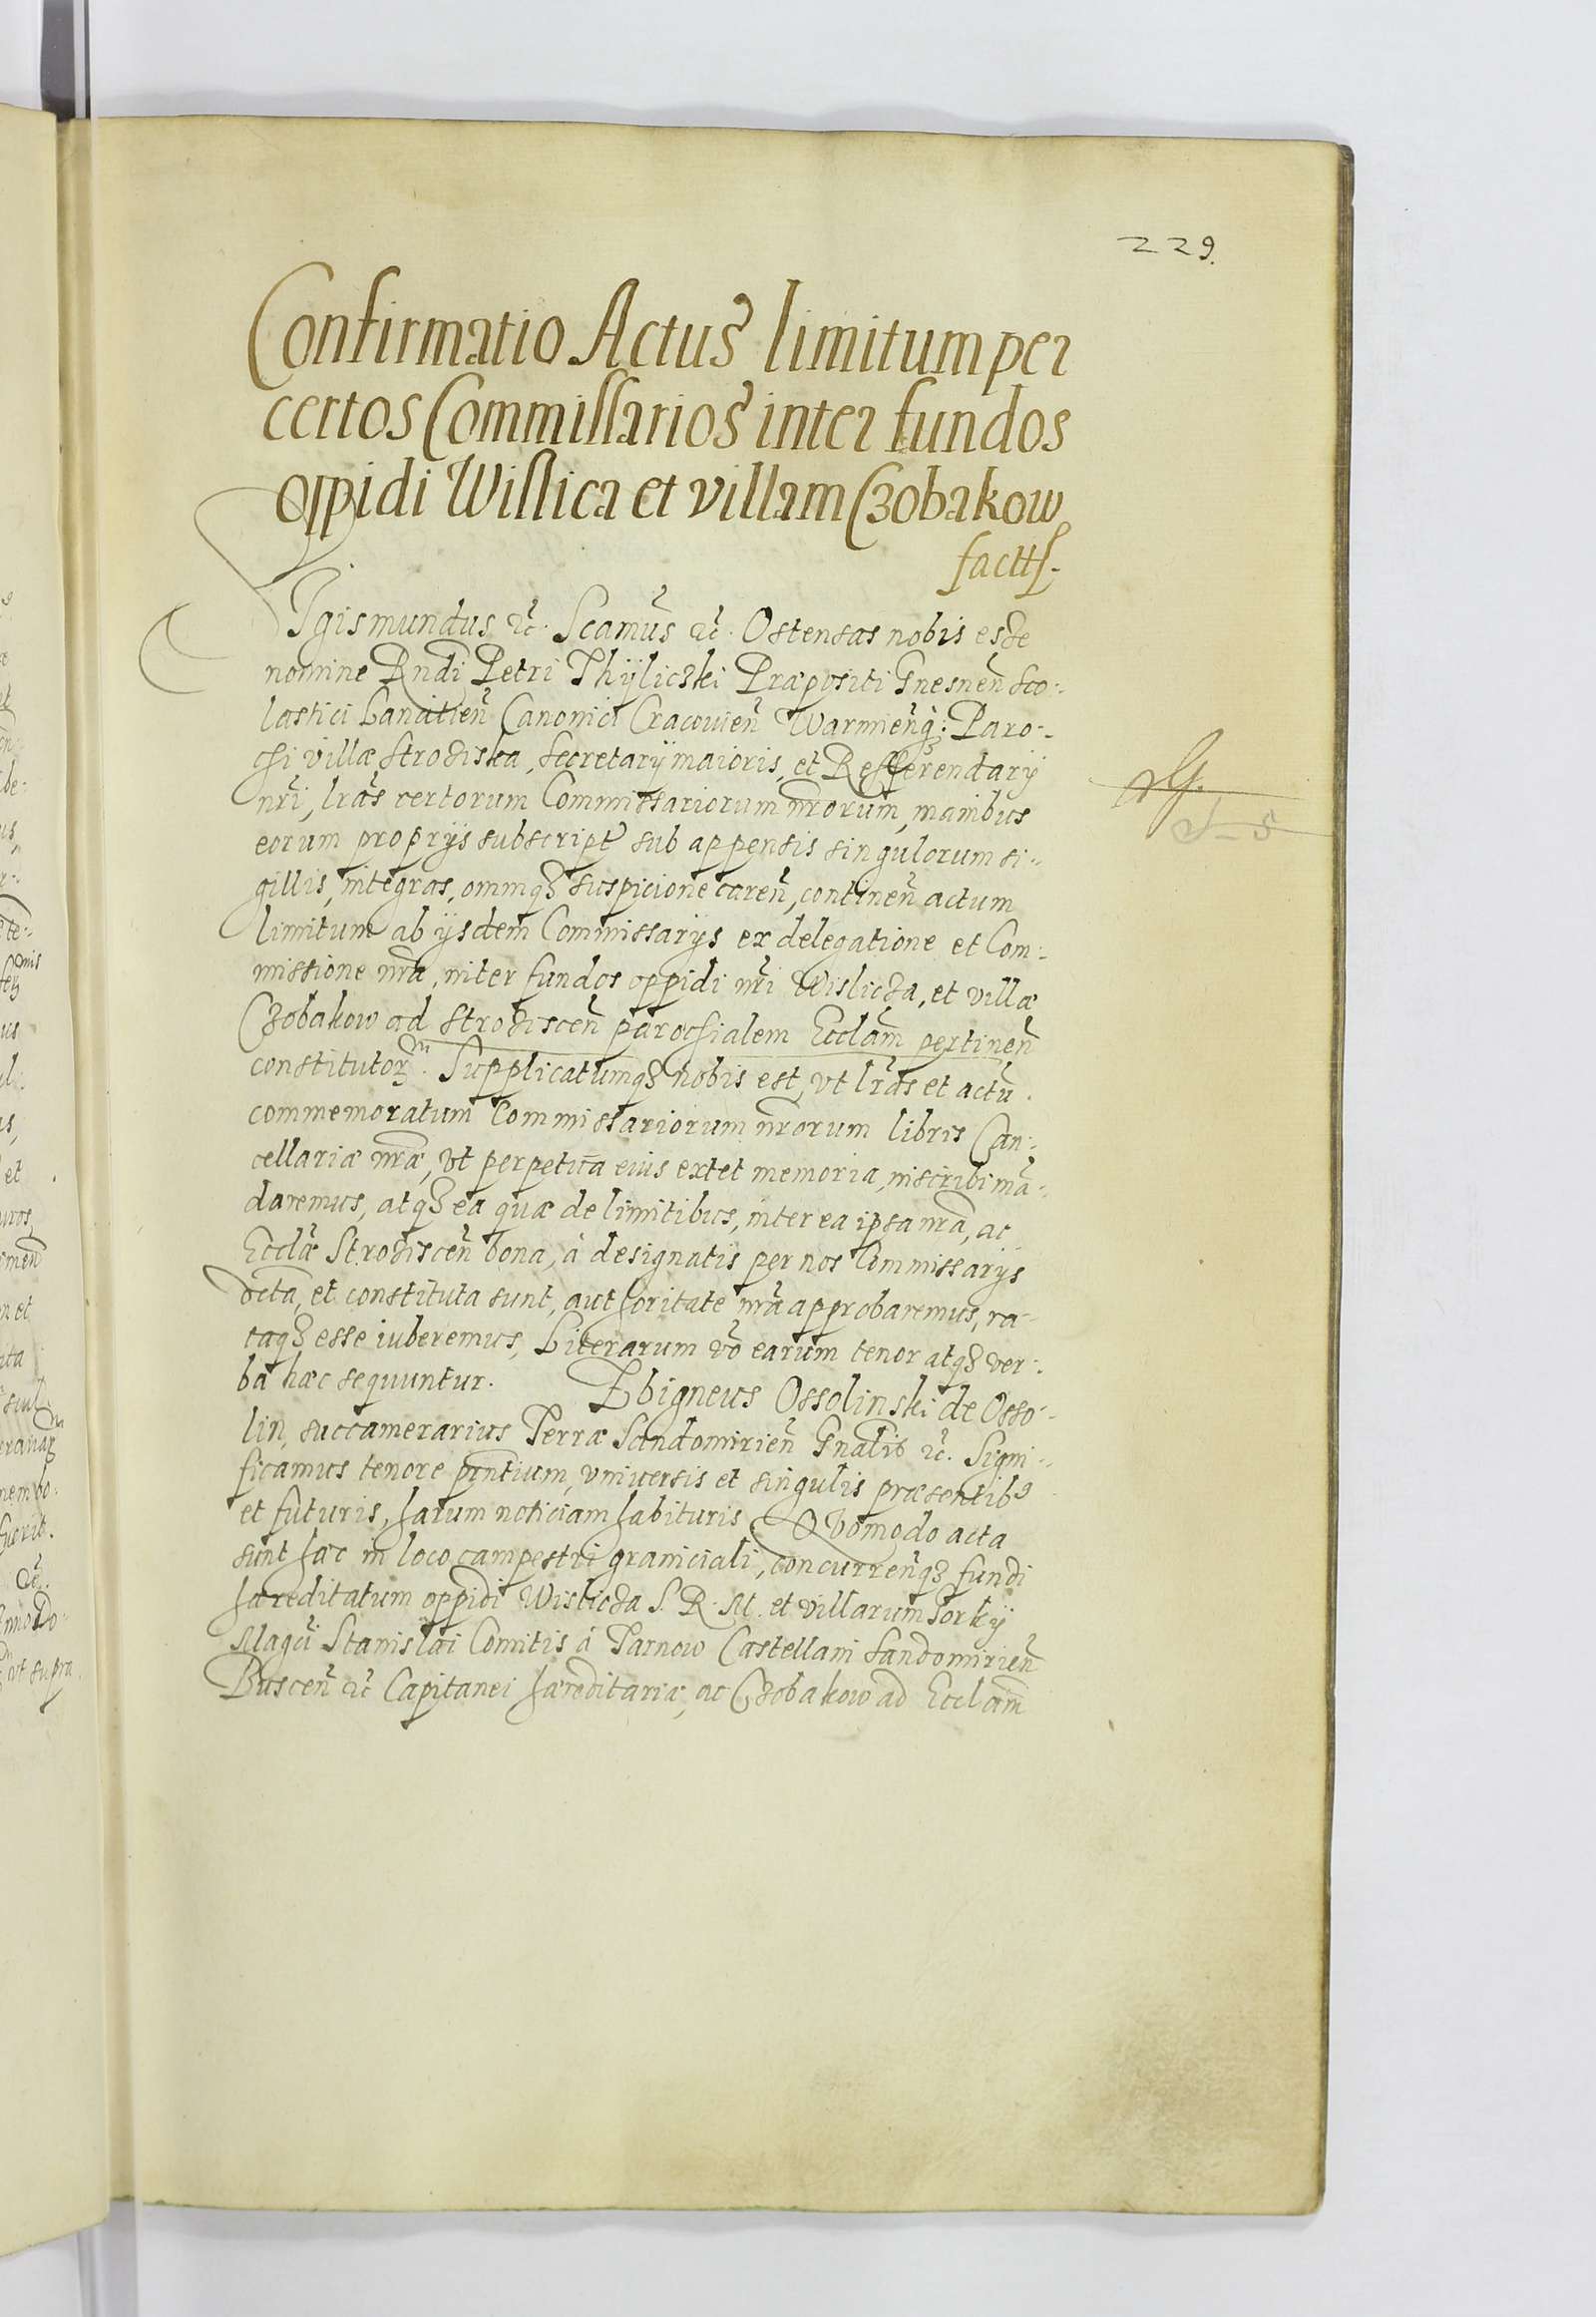 229.
Confirmatio Actus limitum per
certos Commissarios inter fundos
oppidi Wislica et villam Czobakow
Sigismundus etc. Scimus etc. Ostensas nobis esse
nomine Rndi Petri Thÿliczki Præpositi Gnesnen̄ sco-
lastici Lancitien̄ Canonici Cracovien̄ Warmien̄q; Paro-
chi villæ Strosiska, Secretarÿ maioris, et Refferendarÿ
nr̄i, lrās certorum Commissariorum nr̄orum, manibus
eorum proprÿs subscript sub appensis singulorum si-
gillis, integras, omniq3 suspicione caren̄, continen̄ actum
limitum ab ÿsdem Commissarÿs ex delegatione et Com-
missione nr̄a, inter fundos oppidi nr̄i Wislicza, et villæ
Czobakow ad Strosiscen̄ parochialem Eccl̄am pertinen̄
constitutor. Supplicatumq3 nobis est, vt lr̄as et actū
commemoratum Commissariorum nr̄orum libris Can-
cellariæ nr̄æ, vt perpetua eius extet memoria, inscribi mā-
daremus, atq3 ea quæ de limitibus, inter ea ipsa nr̄a, ac
Eccl̄æ Strosiscen̄ bona, à designatis per nos Commissarÿs
dicta, et constituta sunt, authoritate nr̄a approbaremus, ra-
taq3 esse iuberemus, Literarum vō earum tenor atq3 ver-
ba hæc sequuntur. Zbigneus Ossolinski de Osso-
lin, succamerarius Terræ Sandomirien̄ Gn̄alis etc. Signi-
ficamus tenore pn̄tium, vniversis et singulis præsentib9
et futuris, harum noticiam habituris Quomodo acta
sunt hæc in loco campestri graniciali, concurren̄q3 fundi
hæreditatum oppidi Wislicza S. R. M. et villarum Gorkÿ
Magci Stanislai Comitis à Tarnow Castellani Sandomirien̄
Buscen̄ etc Capitanei hæreditariæ, ac Czobakow ad Eccl̄am